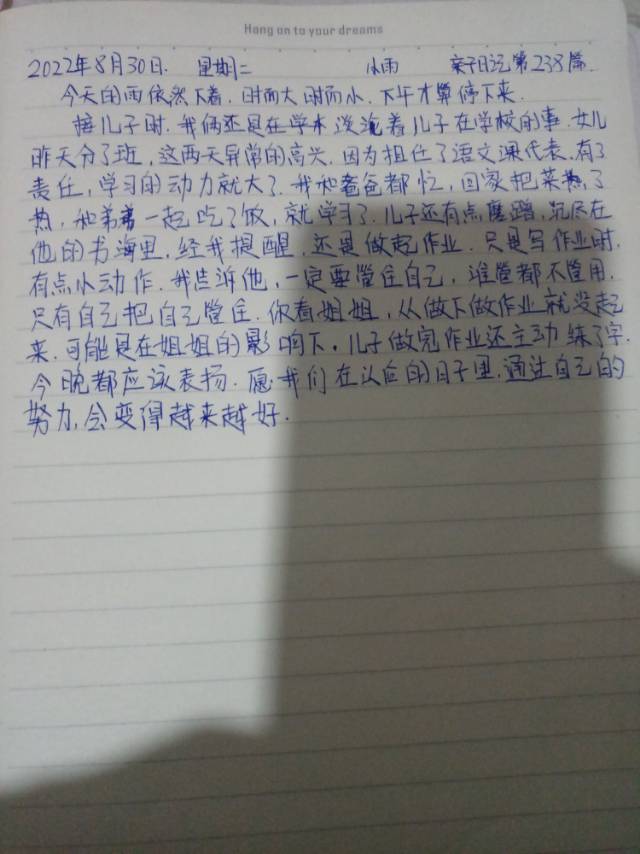 Hang on to your dreams
2022年8月30日. 星期二 小雨 亲子日记第238篇.
今天的雨依然下着.时而大时而小.下午才算停下来.
接儿子时.我俩还是在学术没说着儿子在学校的事.女儿
昨天分了班,这两天异常的高兴.因为担任了语文课代表.有了
责任,学习的动力就大了.我和爸爸都忙,回家把菜热了
热,和弟弟一起吃了饭,就学习了.儿子还有点磨蹭,沉尽在
他的书海里,经我提醒.还是做起作业.只是写作业时.
有点小动作.我告诉他,一定要管住自己,谁管都不管用.
只有自己把自己管住.你看姐姐,从做下做作业就没起
来.可能是在姐姐的影响下.儿子做完作业还主动练了字.
今晚都应该表扬.愿我们在以后的日子里.通过自己的
努力,会变得越来越好.